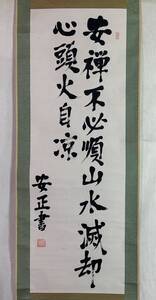 安禪不必須山水滅却
心頭火自凉
安正書